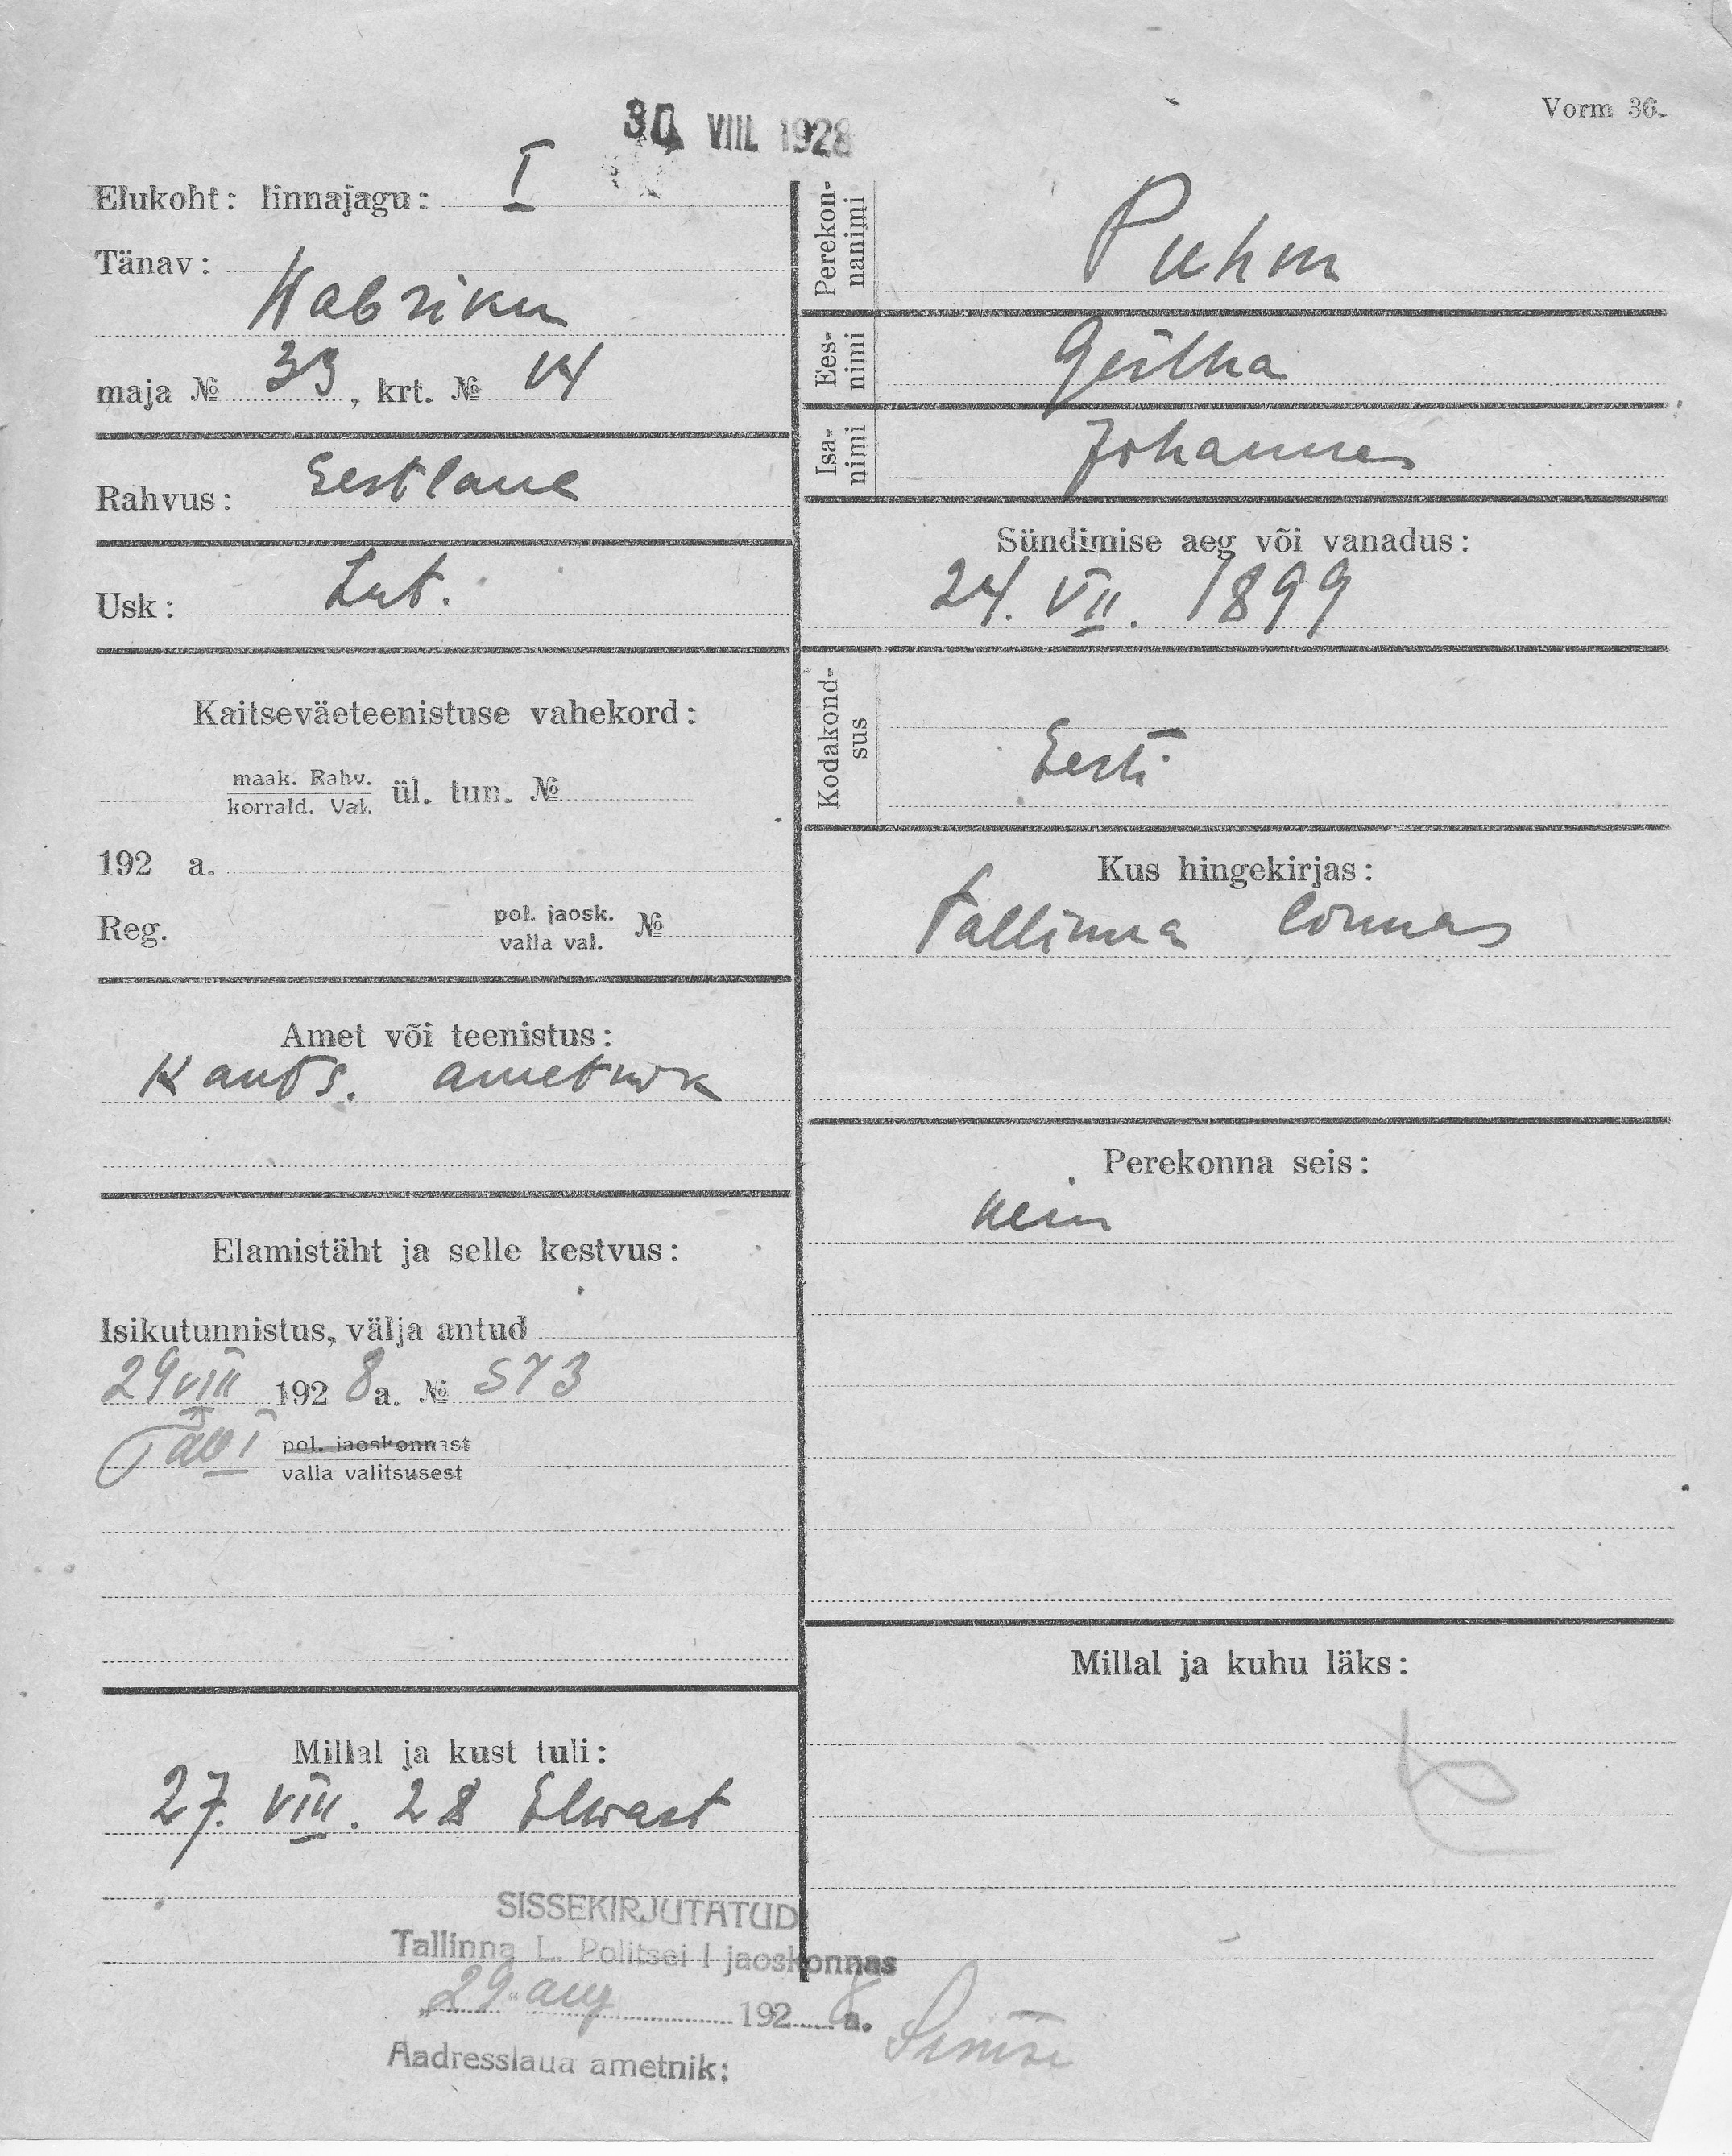 30 VIII 1928
Vorm 36.
Elukoht: linnajagu: I
Tänav:
Wabriku
maja № 33, krt. № 14
Rahvus: Eestlane
Usk: Lut.
Kaitseväeteenistuse vahekord:
maak. Rahv.
korrald. Val. ül. tun. №
192 a.
Reg. pol. jaosk.
valla val. №
Amet või teenistus:
Kants. ametnik
Elamistäht ja selle kestvus:
Isikutunnistus, välja antud
29 VIII 1928 a. № 573
pol. jaoskonnast
valla valitsusest
Millal ja kust tuli:
27. VIII. 28 Elwast
Perekonnanimi
Puhm
Eesnimi
Isanimi
Johannes
Sündimise aeg või vanadus:
24. VII. 1899
Kodakondsus
Eesti
Kus hingekirjas:
Tallinna linnas
Perekonna seis:
Millal ja kuhu läks:
SISSEKIRJUTATUD
Tallinna L. Politsei I jaoskonnas
"29" aug 1928 a.
Aadresslaua ametnik: